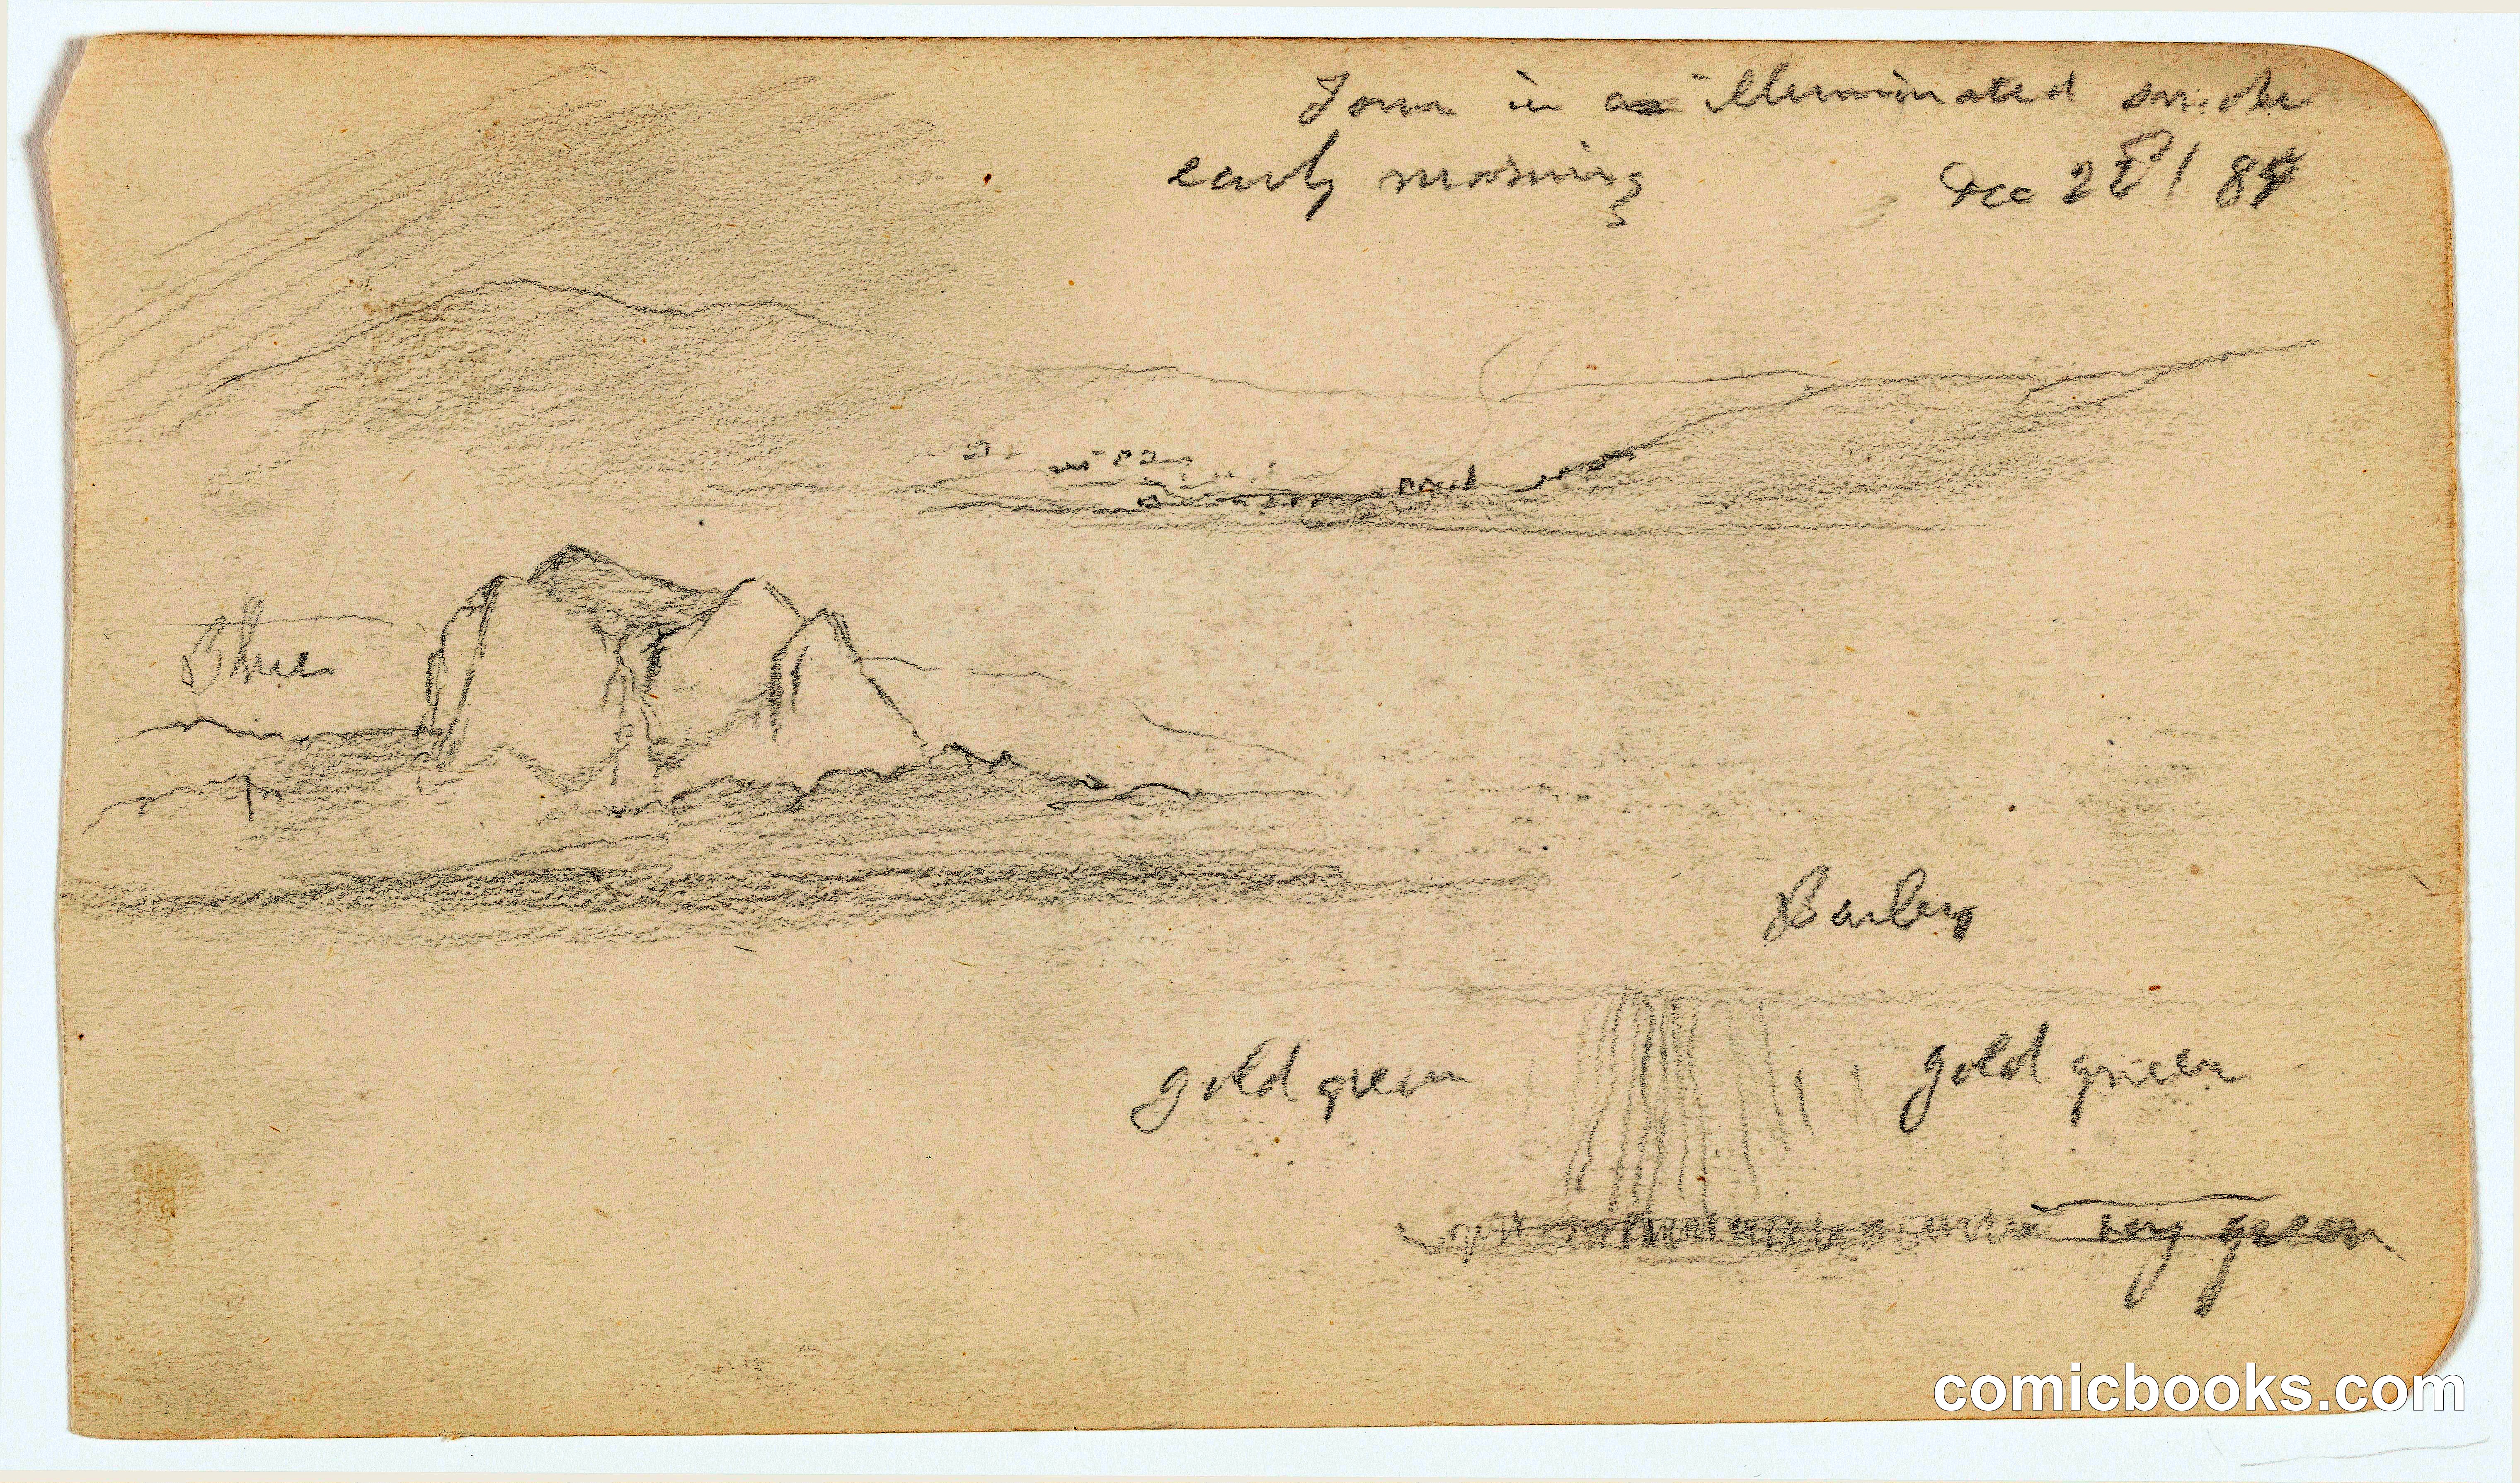 Town in a illuminated smoke
early morning Dec 84
Blue
Barley
gold green gold green
very green
comicbooks.com